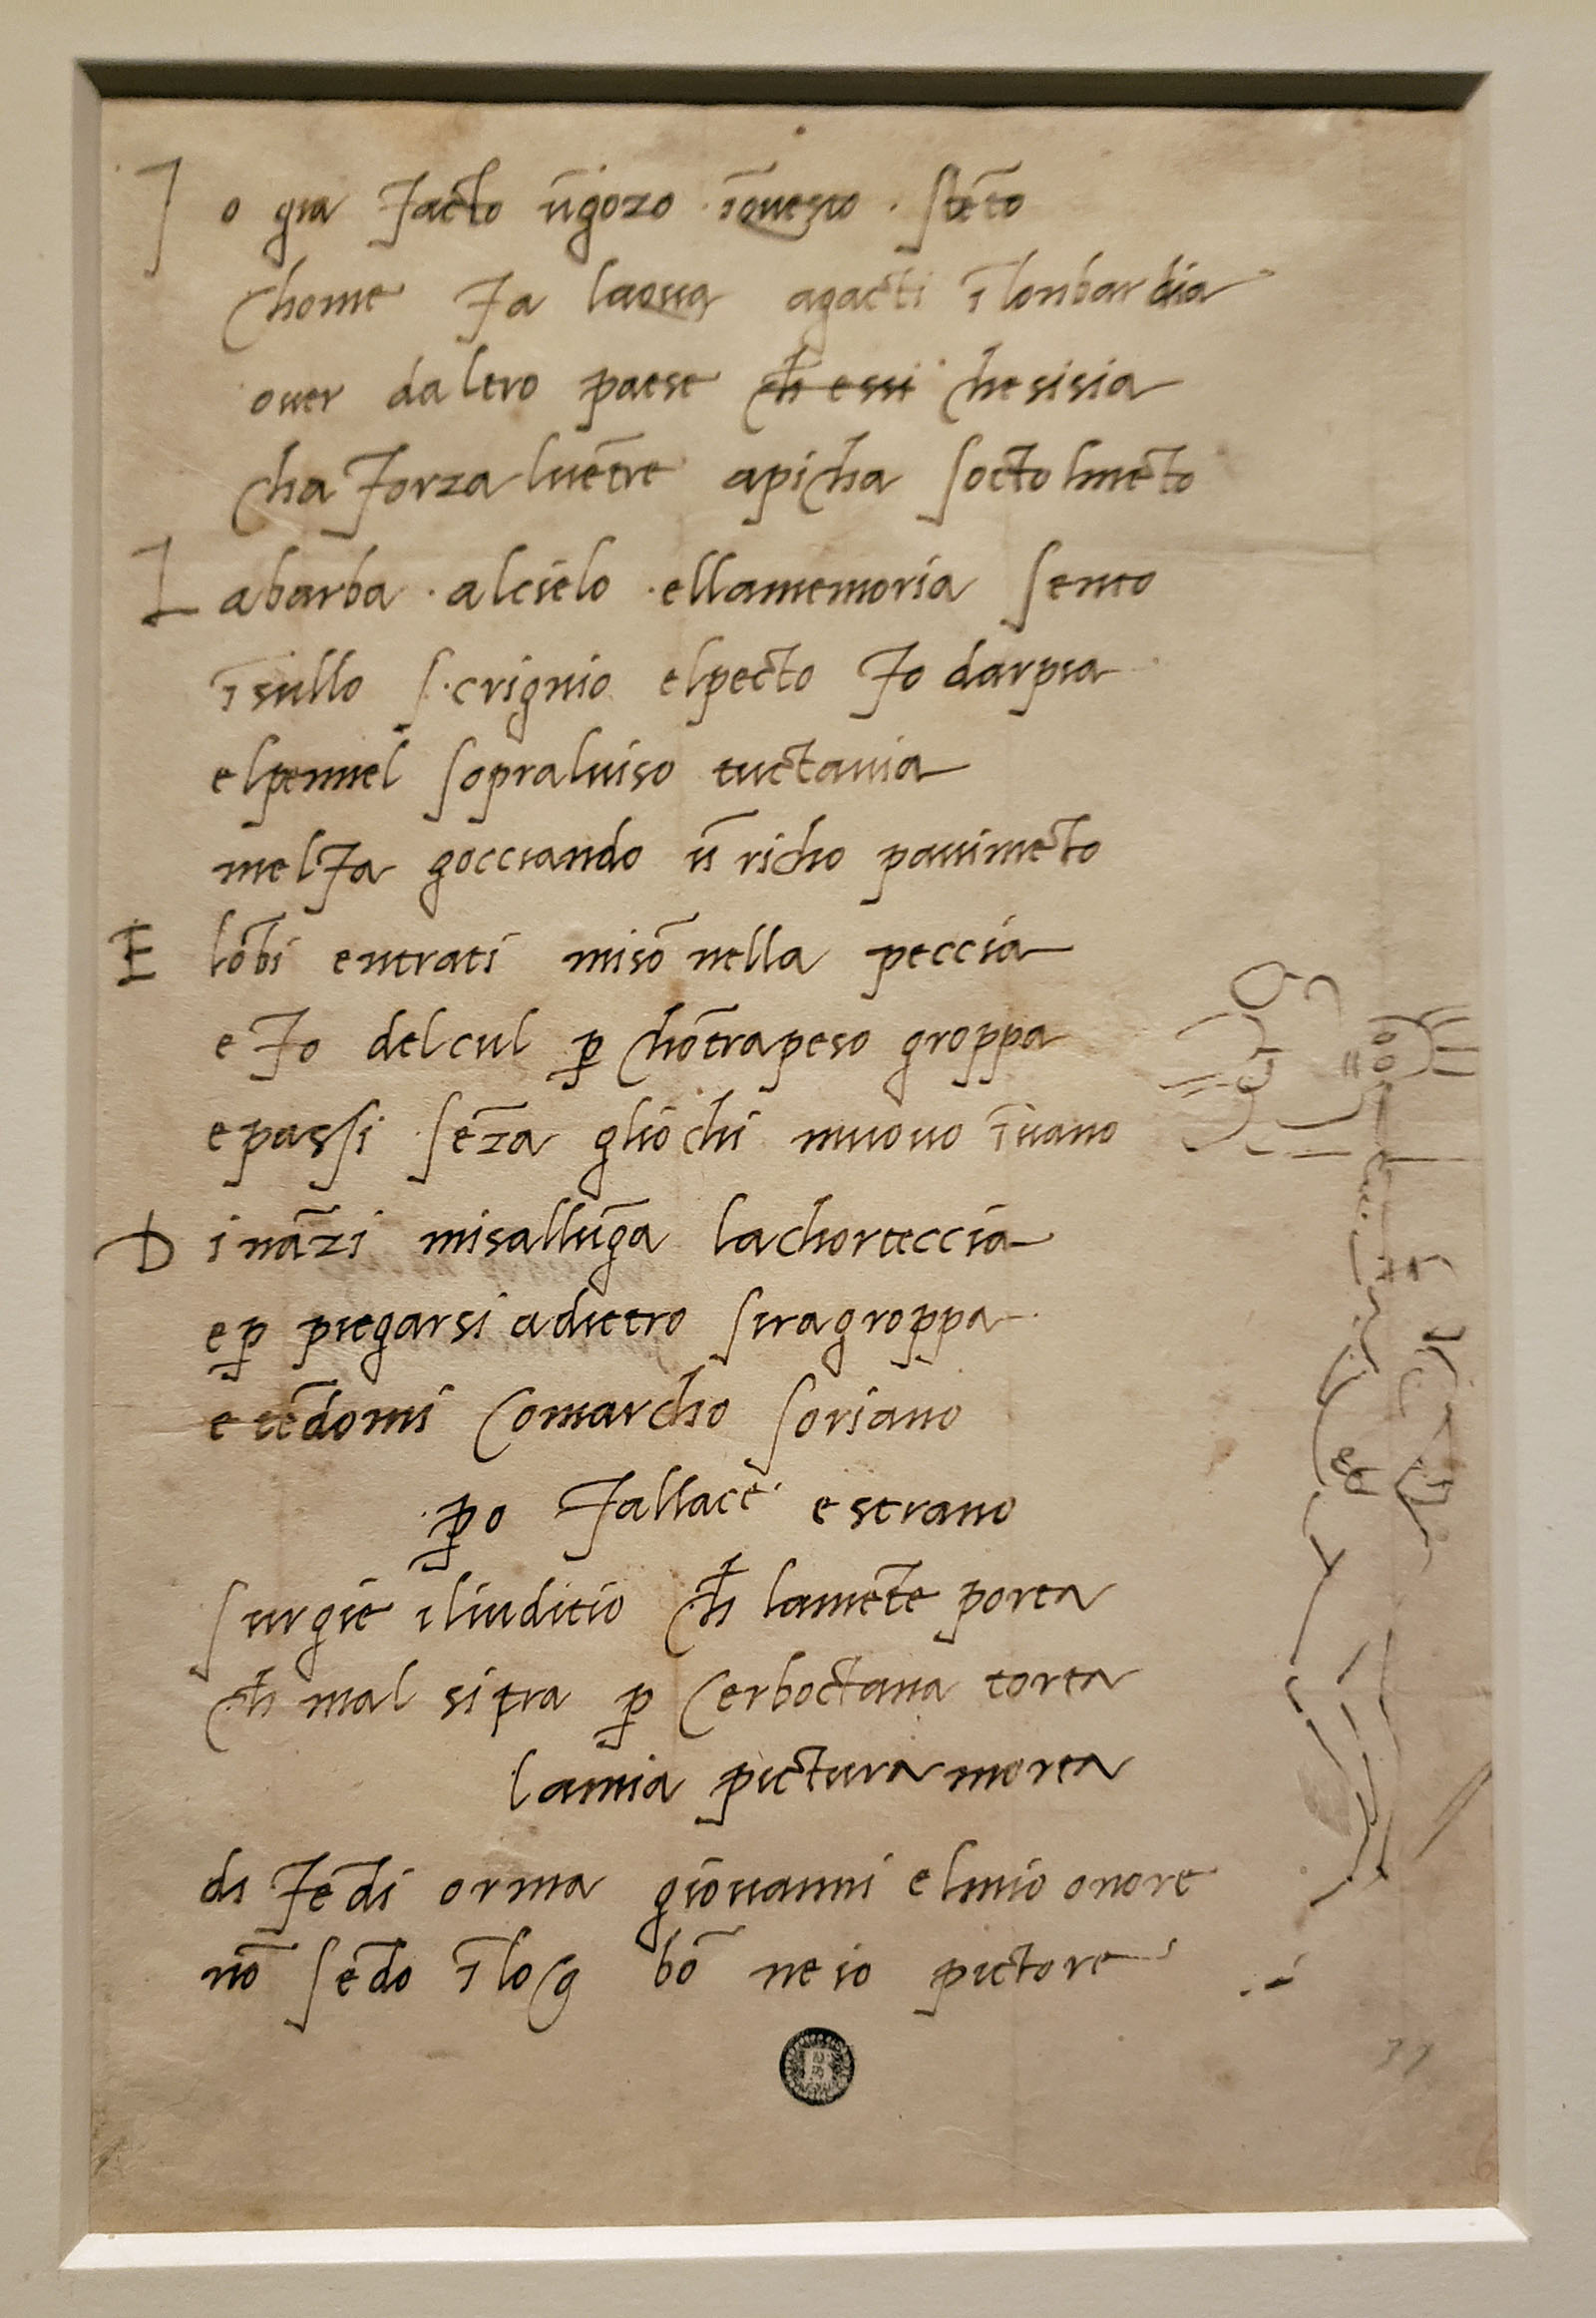 I o gia facto ūgozo ī questo stēto
chome fa laqua agacti ī lonbardia
over daltro paese ch̄ essi che sisia
cha forza lvētre apicha socto lmēto
L abarba alcielo ellamemoria sento
ī sullo scrignio elpecto fo darpia
elpennel sopraluiso tuctauia
mel fa gocciando ū richo pauimēto
E lōbi entrati misō nella peccia
e fo delcul p̱ chōtrapeso groppa
epassi sēza gliochi muouo īuano
D ināzi misallūga lachorteccia
ep̱ piegarsi adietro siragroppa
e tēdomi comarcho soriano
p̱o fallace e strano
surgie iliuditio ch̄ lamēte porta
ch̄ mal si tra p̱ cerboctana torta
lamia pictura morta
di fēdi orma giouanni elmio onore
nō sēdo ī log bō ne io pictore